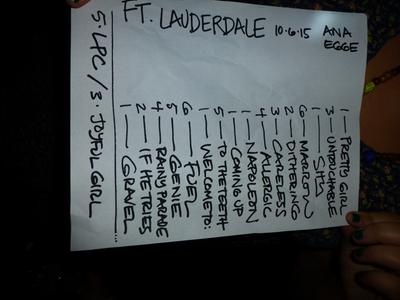 FT. LAUDERDALE 10.6.15 ANA EGGE
1 — PRETTY GIRL
3 — UNTOUCHABLE
1 — SHY
6 — MARROW
2 — DITHERING
3 — CARELESS
4 — ALLERGIC
1 — NAPOLEON
1 — COMING UP
5 — TO THE TEETH
1 — WELCOME TO:
6 — FUEL
5 — GENIE
4 — RAINY PARADE
2 — IF HE TRIES
1 — GRAVEL
5. LPC / 3. JOYFUL GIRL